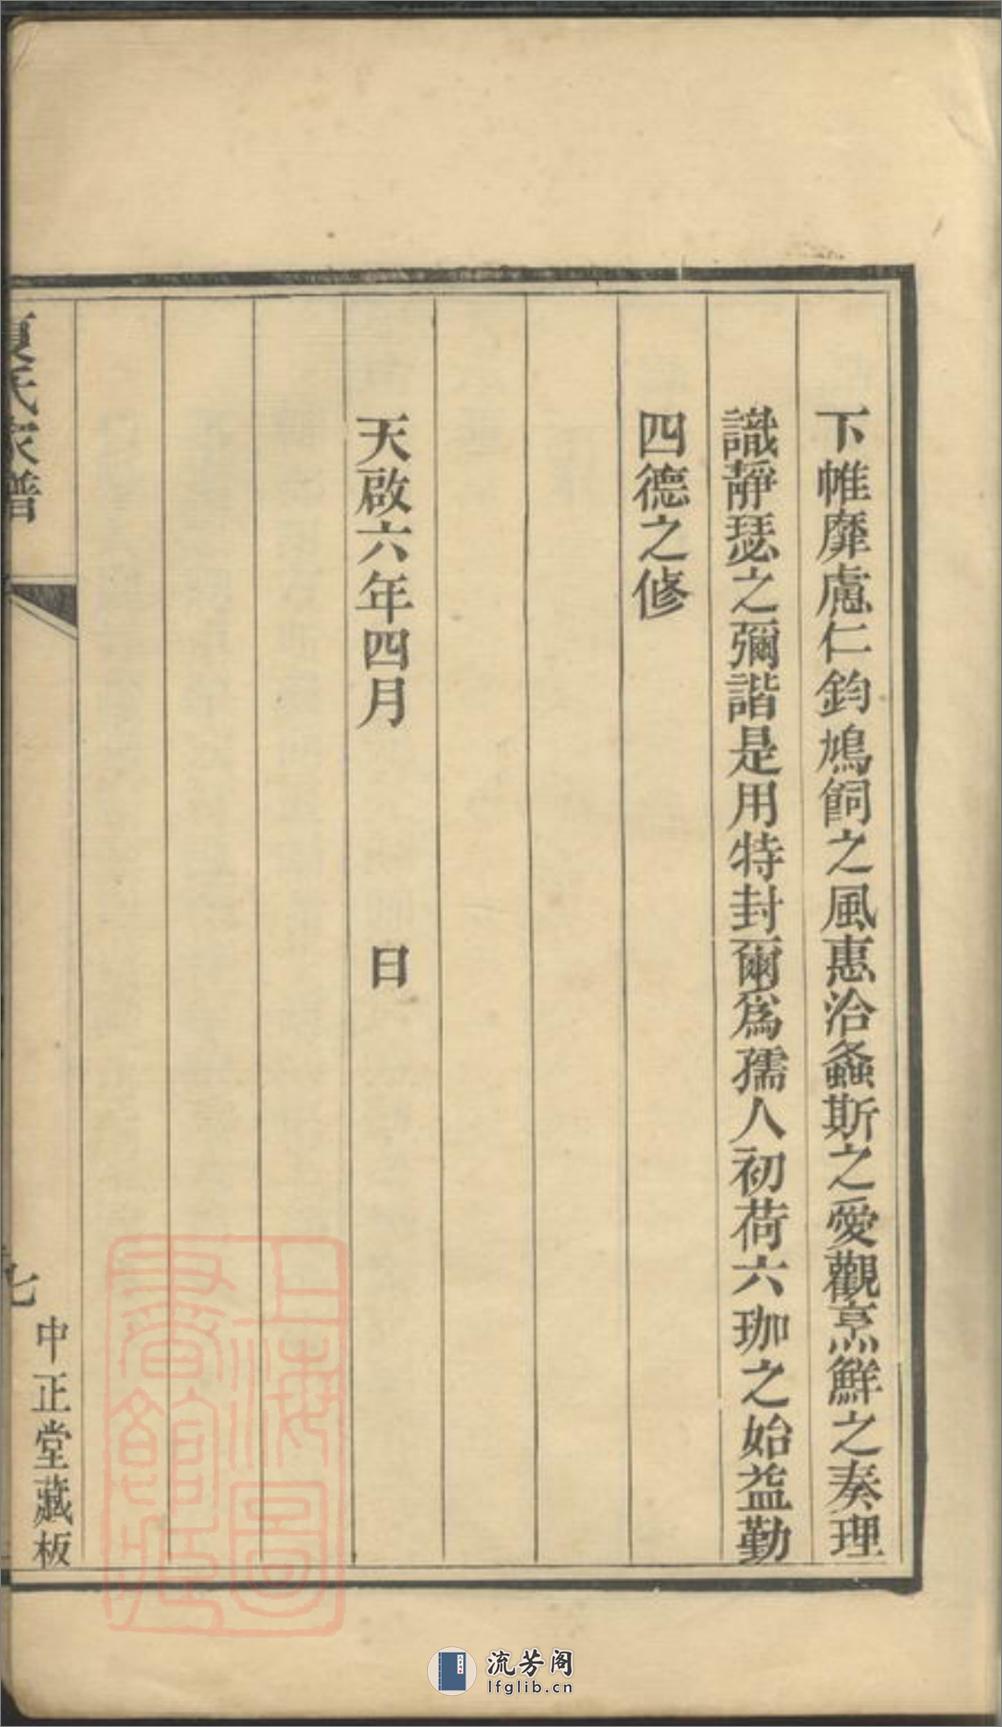 下帷靡慮仁鈞鳲飼之風惠洽螽斯之愛觀烹鮮之奏理
識靜瑟之彌諧是用特封爾爲孺人初荷六珈之始益勤
四德之修
天啟六年四月　　日
夏氏家譜
七
中正堂藏板
上海圖書館藏
流芳阁
lfglib.cn